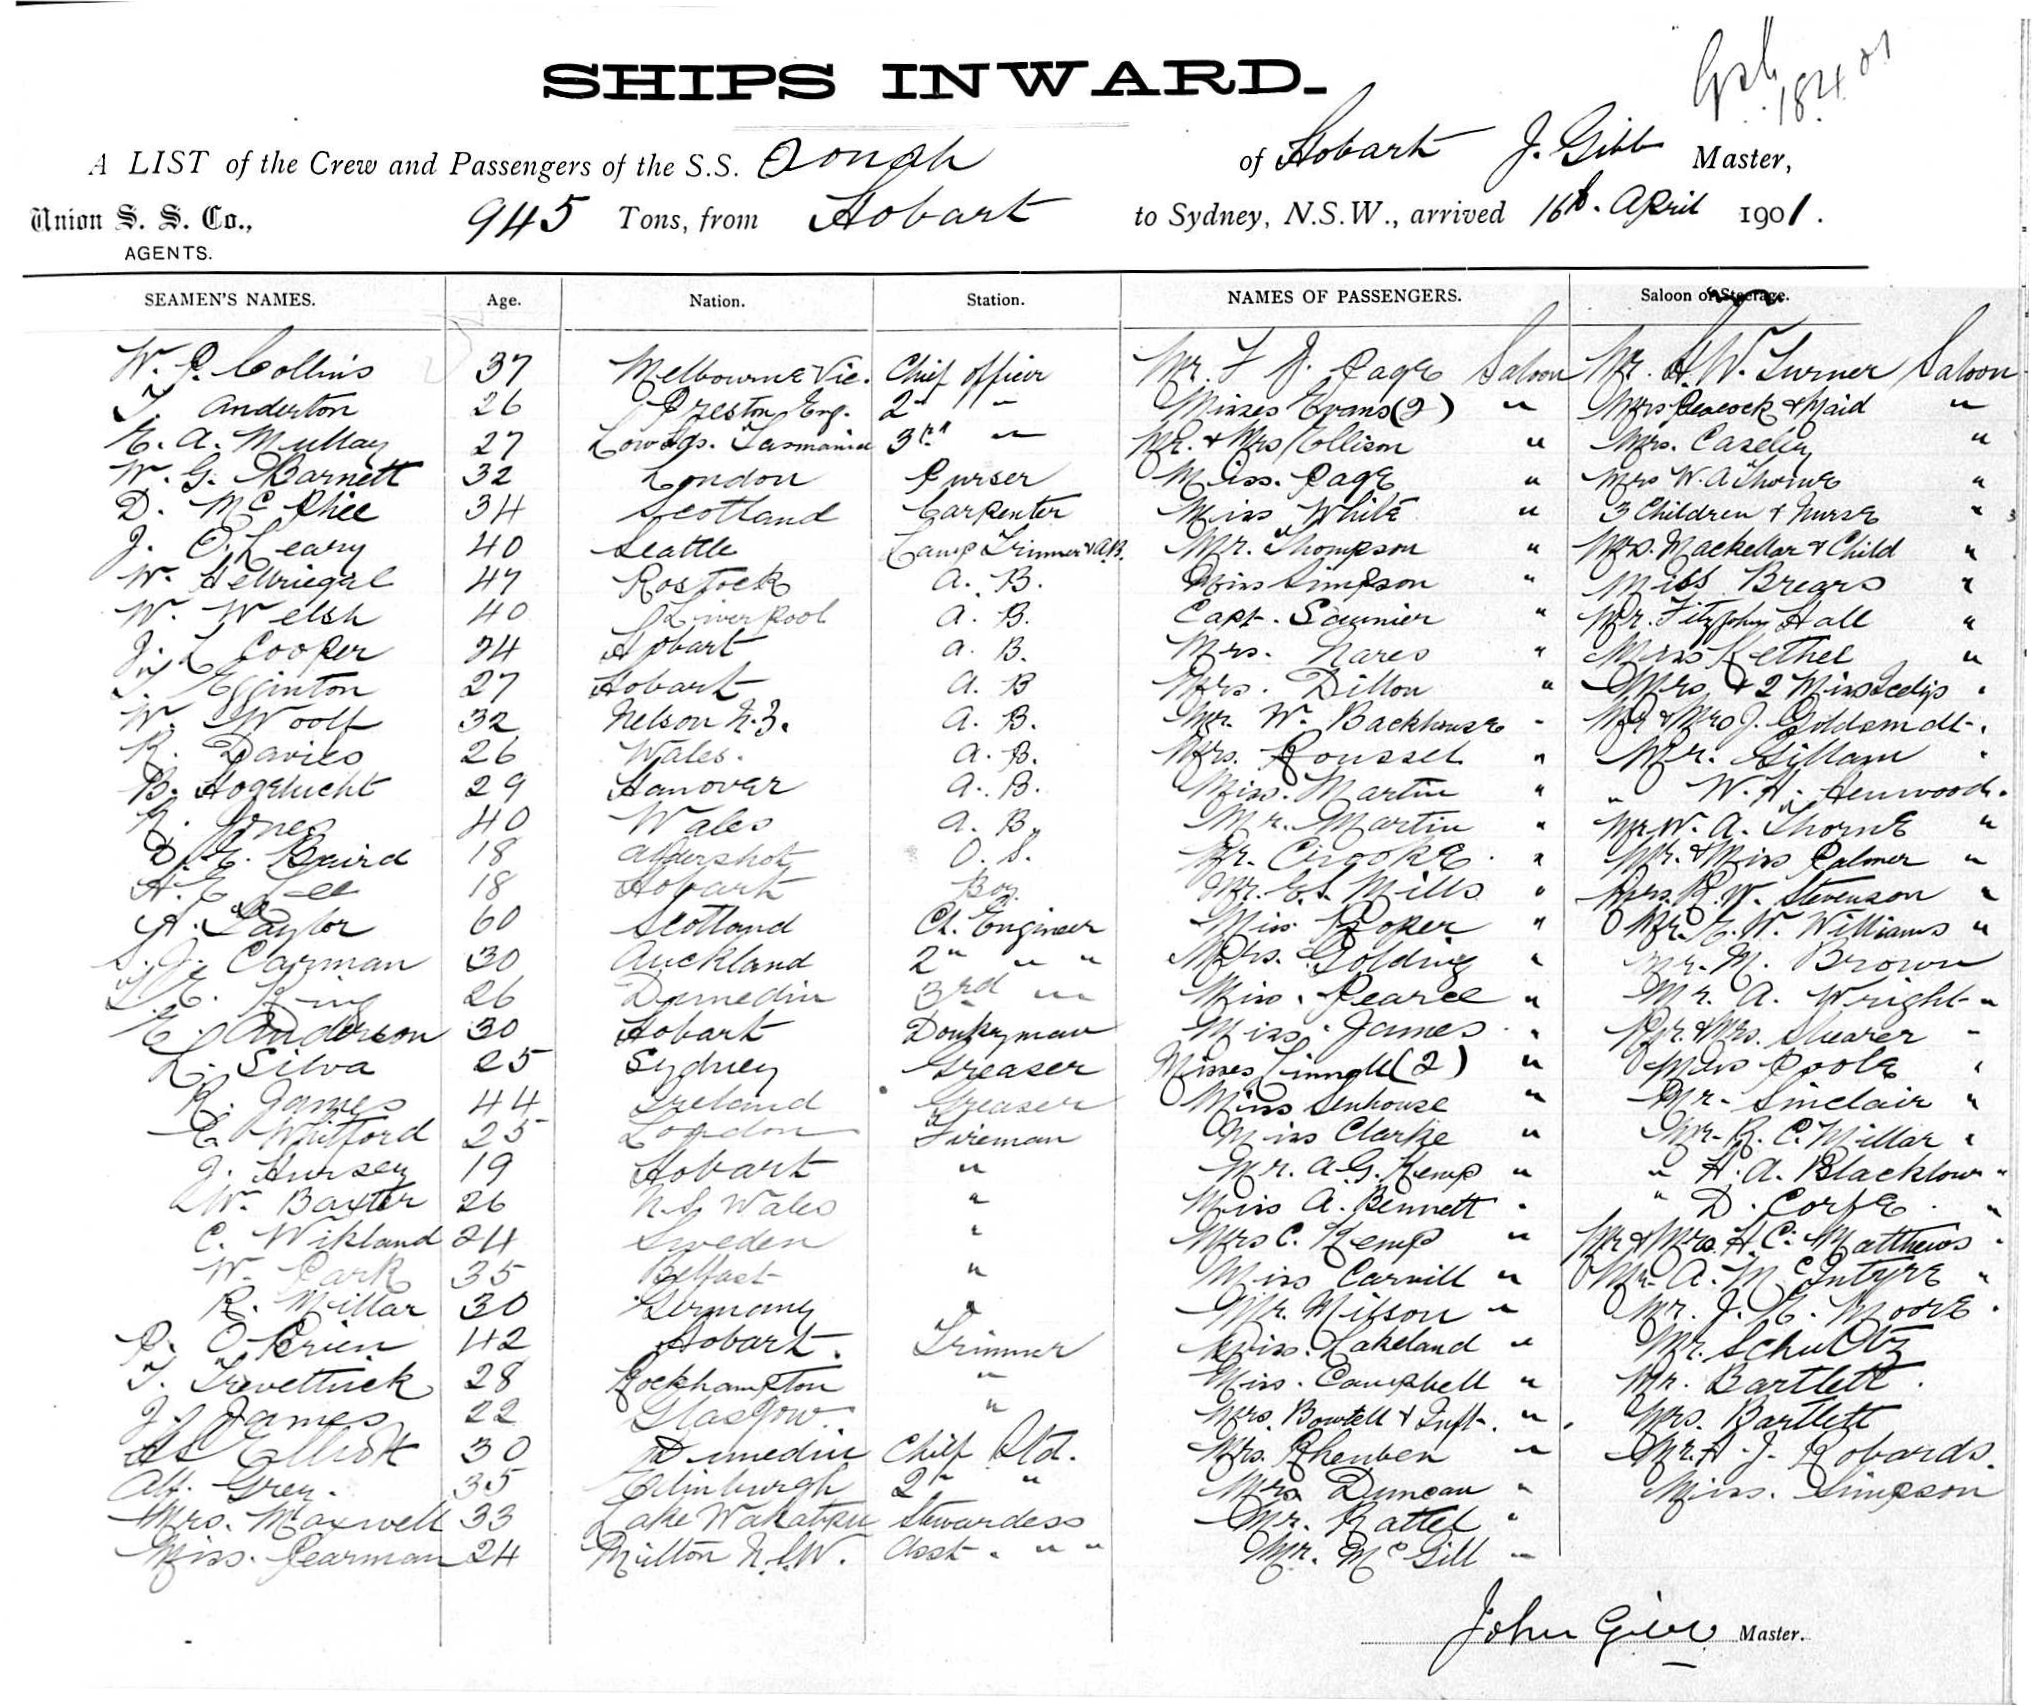 SHIPS INWARD.
184 01
A LIST of the Crew and Passengers of the S.S. Oonah of Hobart J. Gibb Master,
Union S. S. Co., 945 Tons, from Hobart to Sydney, N.S.W., arrived 16th April 1901.
AGENTS.
SEAMEN'S NAMES. Age. Nation. Station. NAMES OF PASSENGERS. Saloon or Steerage.
W. P. Collins 37 Melbourne Vic. Chief Officer Mr. F J. Page Saloon Mr. H. W. Turner Saloon
T. Anderton 26 Preston Eng. 2" " Misses Evans (2) " Mrs Peacock & Maid "
E. A. Mullay 27 Tasmania 3rd " Mr. & Mrs Collison " Mrs. Caseley "
W. G. Barnett 32 London Purser Miss. Page " Mrs W. A Thorne "
D. McPhee 34 Scotland Carpenter Miss White " 3 Children & Nurse "
J. O'Leary 40 Seattle Lamp Trimmer & A.B. Mr. Thompson " Mrs. Mackellar & Child "
W. Helbriegal 47 Rostock A. B. Miss Simpson " Miss Brears "
W. Welsh 40 Liverpool A. B. Capt. Saunier " Mr. Fitzjohn Hall "
J. L Cooper 24 Hobart A. B. Mrs. Nares " Miss Kethel "
T. Eginton 27 Hobart A. B Mrs. Dillon " Mrs & 2 Miss "
W. Woolf 32 Nelson N.Z. A. B. Mr. W. Backhouse " Mr & Mrs J. Goldsmdt "
R. Davies 26 Wales. A. B. Mrs. Roussel " Mr. Gillam "
B. Hogelucht 29 Hanover A. B. Miss. Martin " " W. H. Henwood "
R. Jones 40 Wales A. B. Mr. Martin " Mr W. A. Thorne "
D. E. Baird 18 Aldershot O. S. Mr. Crooke " Mr. & Miss Palmer "
A. E Lee 18 Hobart Boy Mr. E. S. Mills " Mrs. R. W. Stevenson "
A. Taylor 60 Scotland Ch. Engineer Miss Roper " Mr. E. W. Williams "
S. J. Carman 30 Auckland 2" " " Mrs. Golding " Mr. M. Brown
T. E. King 26 Dunedin 3rd " " Miss. Pearce " Mr. A. Wright "
E. Anderson 30 Hobart Donkeyman Miss. James " Mr. & Mrs. Shearer "
L. Silva 25 Sydney Greaser Misses (2) " Miss Poole "
R. James 44 Ireland Greaser Miss Senhouse " Mr. Sinclair "
C. Whitford 25 London Fireman Miss Clarke " Mr. R. C. Millar "
J. Hursey 19 Hobart " Mr. A. G. Kemp " " H. A. Blacklow "
W. Baxter 26 N.S. Wales " Miss A. Bennett " " D. Corfe "
C. Wikland 24 Sweden " Mrs C. Kemp " Mr & Mrs H. C. Matthews "
W. Park 35 Belfast " Miss Carvill " Mr. A. McIntyre "
R. Millar 30 Germany " Mr. Milson " Mr. J. H. Moore "
P. O'Brien 42 Hobart. Trimmer Miss. Lakeland " Mr. Schultz
T. Trevettick 28 Rockhampton " Miss. Campbell " Mr. Bartlett.
J. James 22 Glasgow. " Mrs. Bowtell & Inft. " Mrs. Bartlett
Elliott 30 Dunedin Chief Std. Mrs. Rheuben " Mr. A. J. Robards.
Alf. Grey. 35 Edinburgh 2" " Mrs Duncan " Miss. Simpson
Mrs. Maxwell 33 Lake Wakatipu Stewardess Mr. Rattel "
Miss. Pearman 24 Milton N.S.W. Asst. " " Mr. McGill "
John Gibb Master.